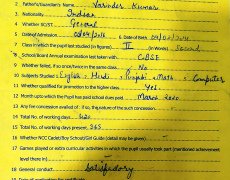 2 Father's/Guardian's Name Varinder Kumar
3. Nationality Indian
4 Whether SC/ST General
5. Date of Admission 6. Date of Birth
7. Class in which the pupil last studied (in figures) III (in Words) Second
8 School/Board Annual examination last taken with CBSE
9. Whether failed, if so once/twice in the same class No
10. Subjects Studied : English, Hindi, Punjabi, Math, Computer
11. Whether qualified for promotion to the higher class Yes.
12. Month upto which the Pupil has paid school dues paid March 2020
13. Any fee concession availed of : if so, the nature of the such concession.
14. Total No. of working days 420
15. Total No. of working days present 365
16. Whether NCC Cadet/Boy School/Girl Guide (detail may be given)
17. Games played or extra curricular activities in which the pupil usually took part (mentioned achievement
level there in)
18. General conduct Satisfactory